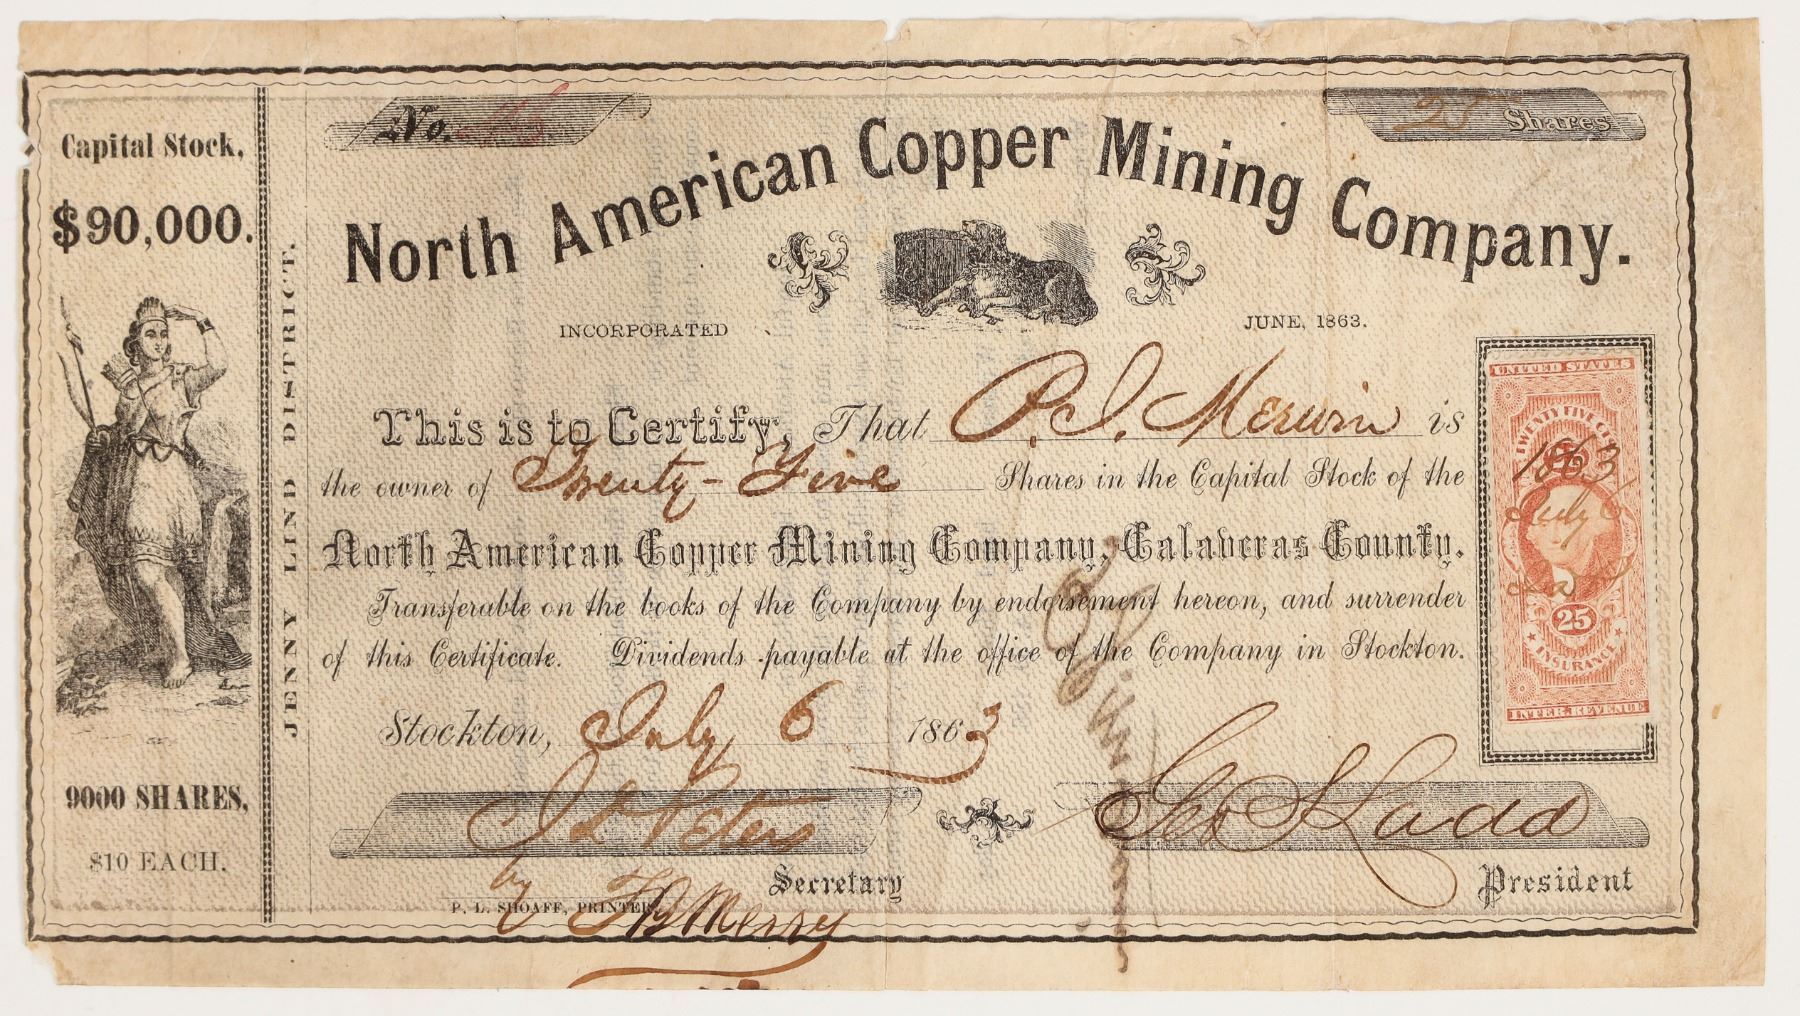 Capital Stock,
$90,000.
9000 SHARES,
$10 EACH.
JENNY LIND DISTRICT.
No.
25 Shares
North American Copper Mining Company.
INCORPORATED JUNE, 1863.
This is to Certify, That P. I. Merwin is
the owner of Twenty-Five Shares in the Capital Stock of the
North American Copper Mining Company, Calaveras County.
Transferable on the books of the Company by endorsement hereon, and surrender
of this Certificate. Dividends payable at the office of the Company in Stockton.
Stockton, July 6 1863
J D Peters
Secretary
by
P. L. SHOAFF, PRINTER
Geo S Ladd
President
UNITED STATES
TWENTY FIVE
1863
July 6
25
INSURANCE
INTER. REVENUE